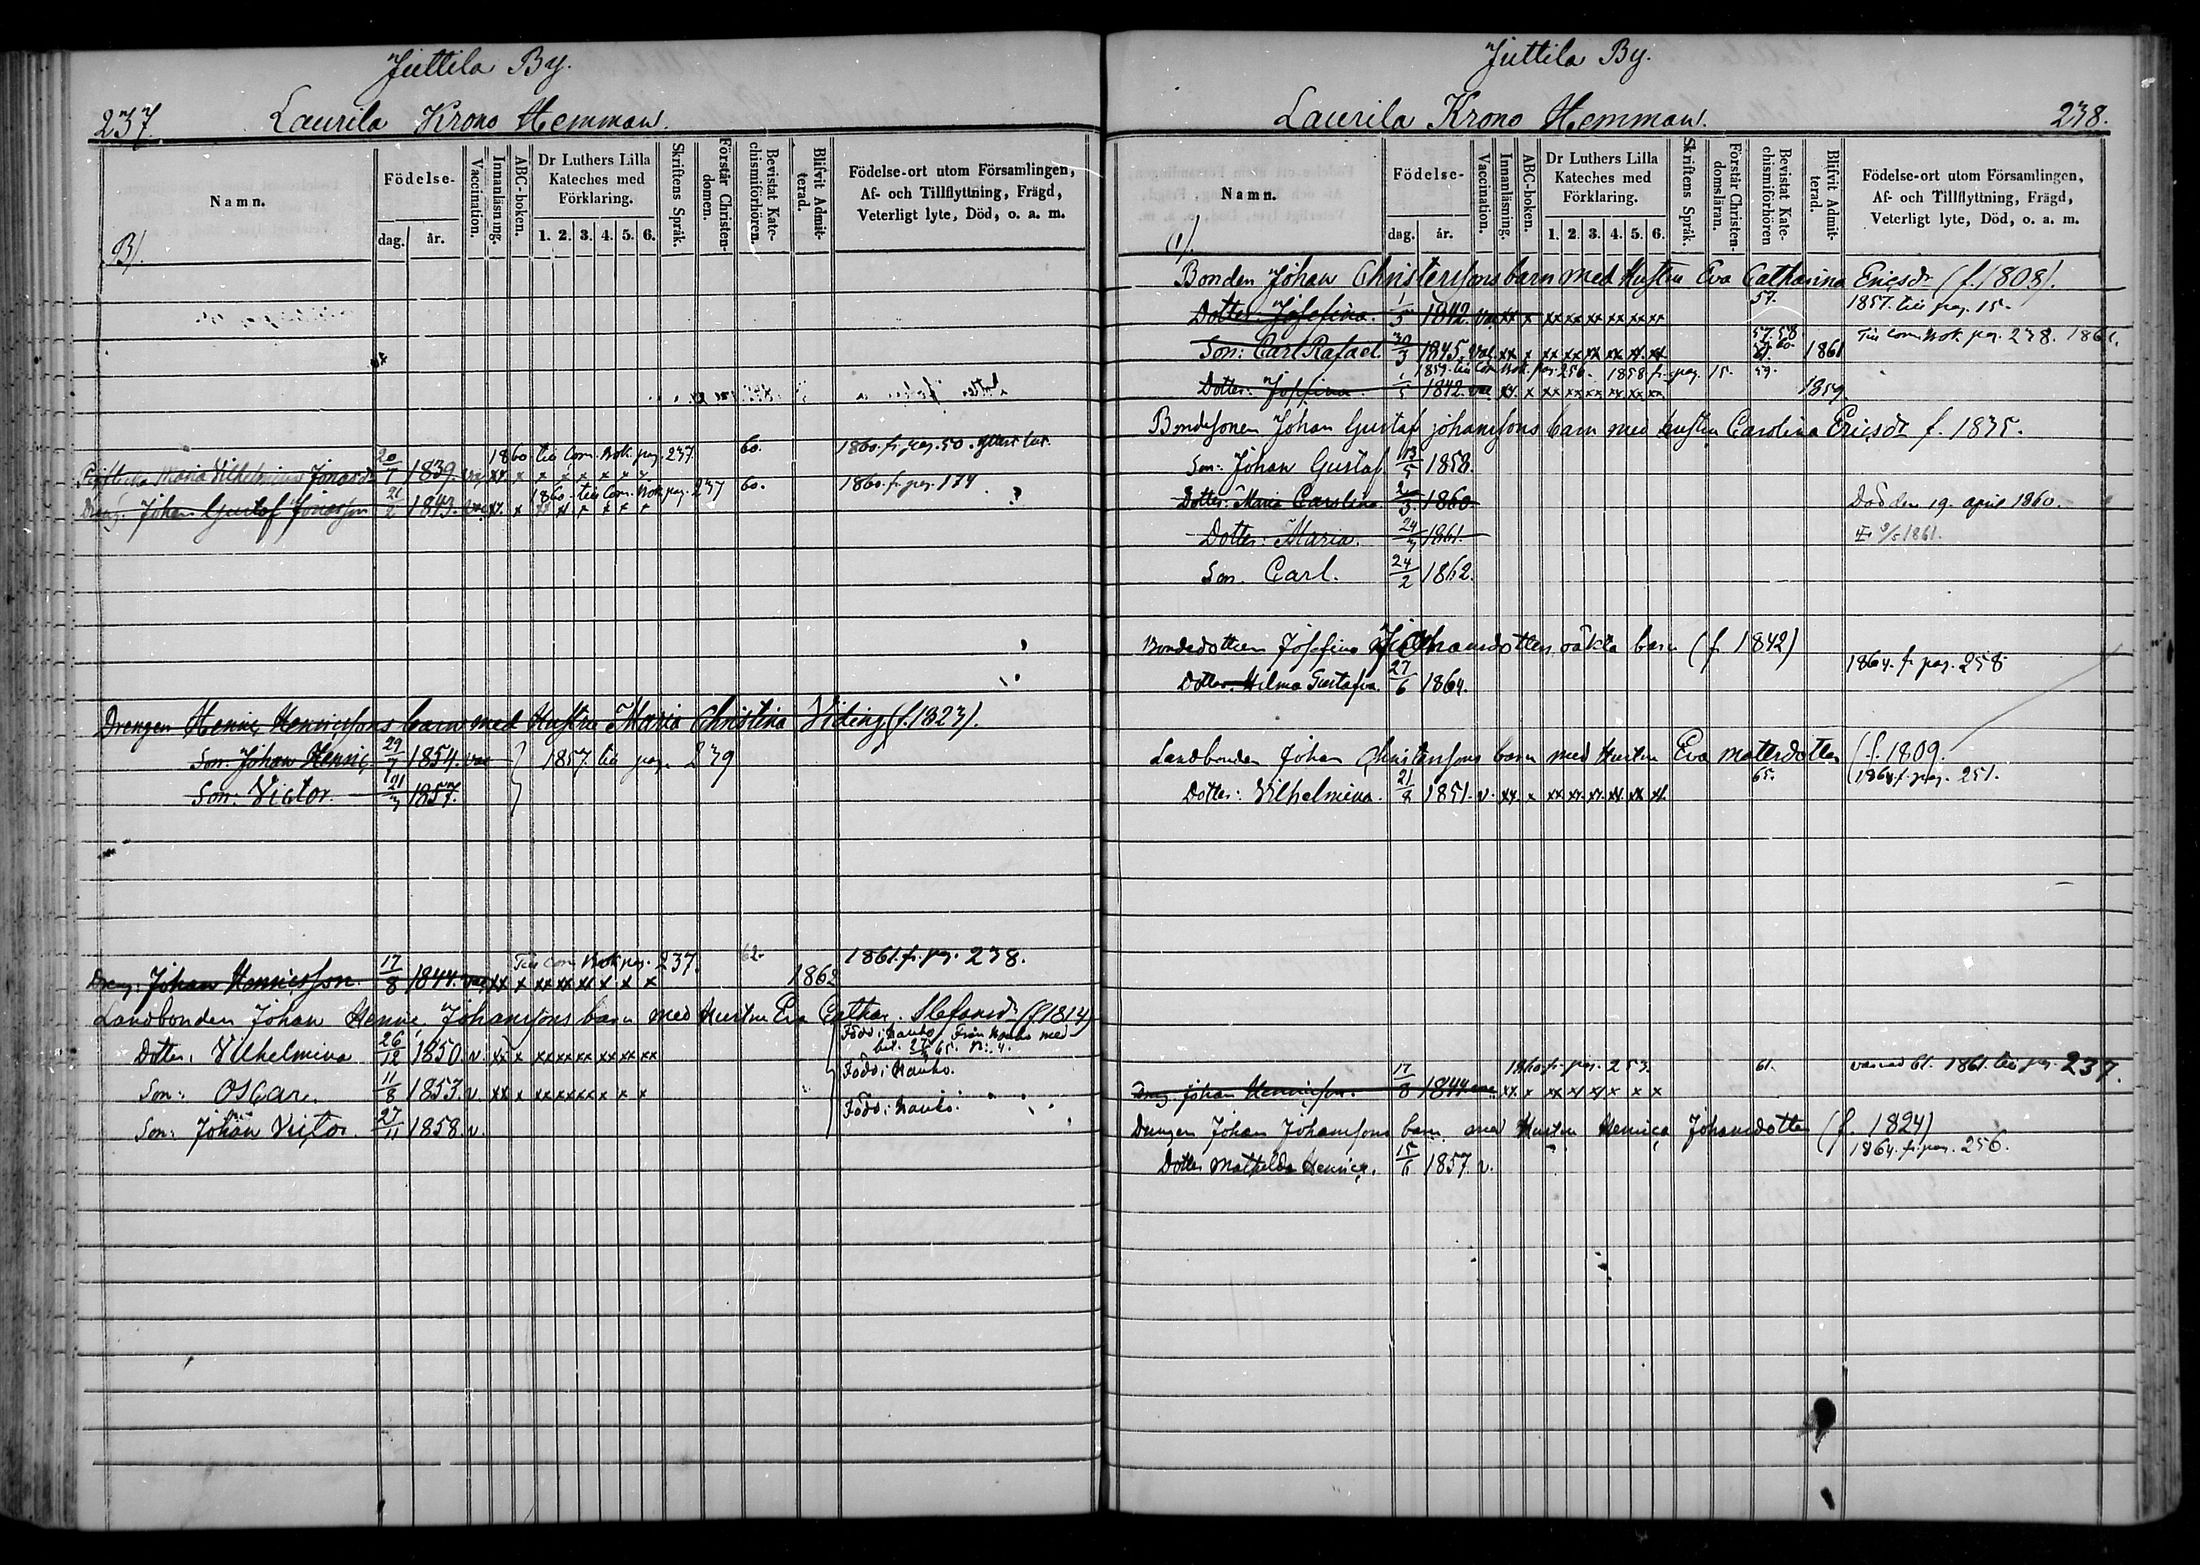 Juttila By.
237 Laurila Krono Hemman.
Namn.
Födelse-
dag. år.
Vaccination.
Innanläsning.
ABC-boken.
Dr Luthers Lilla Kateches med Förklaring.
1. 2. 3. 4. 5. 6.
Skriftens Språk.
Förstår Christendomen.
Bevistat Katechismiförhören
Blifvit Admitterad.
Födelse-ort utom Församlingen,
Af- och Tillflyttning, Frägd,
Veterligt lyte, Död, o. a. m.
B/.
1860 til Com. Bok. pag. 237 60. 1860. fr. pag. 50.
Maria Vilhelmina 20/1 1839. vac xx. x x x x x x x
1860. til Com. Bok. pag. 237 60. 1860. fr. pag. 174 ?
Dreng. Johan Gustaf Jonasson 21/2 1843. vac xx. x xx x x x x x
Drengen Henric Henricssons barn med Hustru Maria Christina Viding (f. 1823).
Son: Johan Henric. 29/7 1854. vac } 1857. til pag. 239
Son: Victor. 21/3 1857.
Til Com. Bok. pag. 237. 62. 1861. fr. pag. 238.
Dreng: Johan Henricsson. 17/8 1844. vac xx x xx xx xx x. x x 1862
Landbonden Johan Henric Johanssons barn med Hustru Eva Cathar. Stefansdr (f. 1814)
Dotter. Vilhelmina 26/12 1850. v. xx x xx xx xx xx xx xx Född i Nauvo. Från Nauvo med
bet. 65. N: 4.
Son: Oscar. 11/8 1853. v xx x xx xx xx x x x Född i Nauvo.
Son: Johan Victor. 27/11 1858. v. Född i Nauvo.
Juttila By.
Laurila Krono Hemman. 238.
Namn.
Födelse-
dag. år.
Vaccination.
Innanläsning.
ABC-boken.
Dr Luthers Lilla Kateches med Förklaring.
1. 2. 3. 4. 5. 6.
Skriftens Språk.
Förstår Christendomsläran.
Bevistat Katechismiförhören
Blifvit Admitterad.
Födelse-ort utom Församlingen,
Af- och Tillflyttning, Frägd,
Veterligt lyte, Död, o. a. m.
1/.
Bonden Johan Christerssons barn med Hustru Eva Catharina Ericsdr (f. 1808).
Dotter: Josefina. 1/5 1842. vac xx x xx xx xx xx xx xx 57. 1857. til pag. 15.
Son: Carl Rafael. 30/3 1845. vac. xx x xx xx xx xx xx. xx 57. 58 60. 61. 1861 Til Com. Bok. pag. 238. 1861.
1859. til Com. Bok. pag. 256. 1858 fr. pag. 15. 59.
Dotter: Josefina 1/5 1842. vac xx. x xx xx xx xx xx xx 1859
Bondesonen Johan Gustaf Johanssons barn med hustru Carolina Ericsdr f. 1835.
Son: Johan Gustaf 13/5 1858.
Dotter: Maria Carolina 2/3 1860 Död den 19. april 1860.
Dotter: Maria. 24/3 1861. 1861.
Son. Carl. 24/2 1862.
Bondedottren Josefina Johansdotters oäkta barn (f. 1842)
Dotter. Hilma Gustafva. 27/6 1864. 1864. fr. pag. 258
Landbonden Johan Christerssons barn med Hustru Eva Mattsdotter (f. 1809.
Dotter: Vilhelmina. 21/8 1851. v. xx. x xx xx. xx. xx. xx xx. 65. 1864. fr. pag. 251.
1860. fr. pag. 253. 61. 61. 1861. til pag. 237.
Dreng Johan Henricsson. 17/8 1844 vac. xx. x x x x x x x
Drengen Johan Johanssons barn med Hustru Henrica Johansdotter (f. 1824)
Dotter Mathilda Henrica. 15/6 1857. v. 1864. fr. pag. 256.